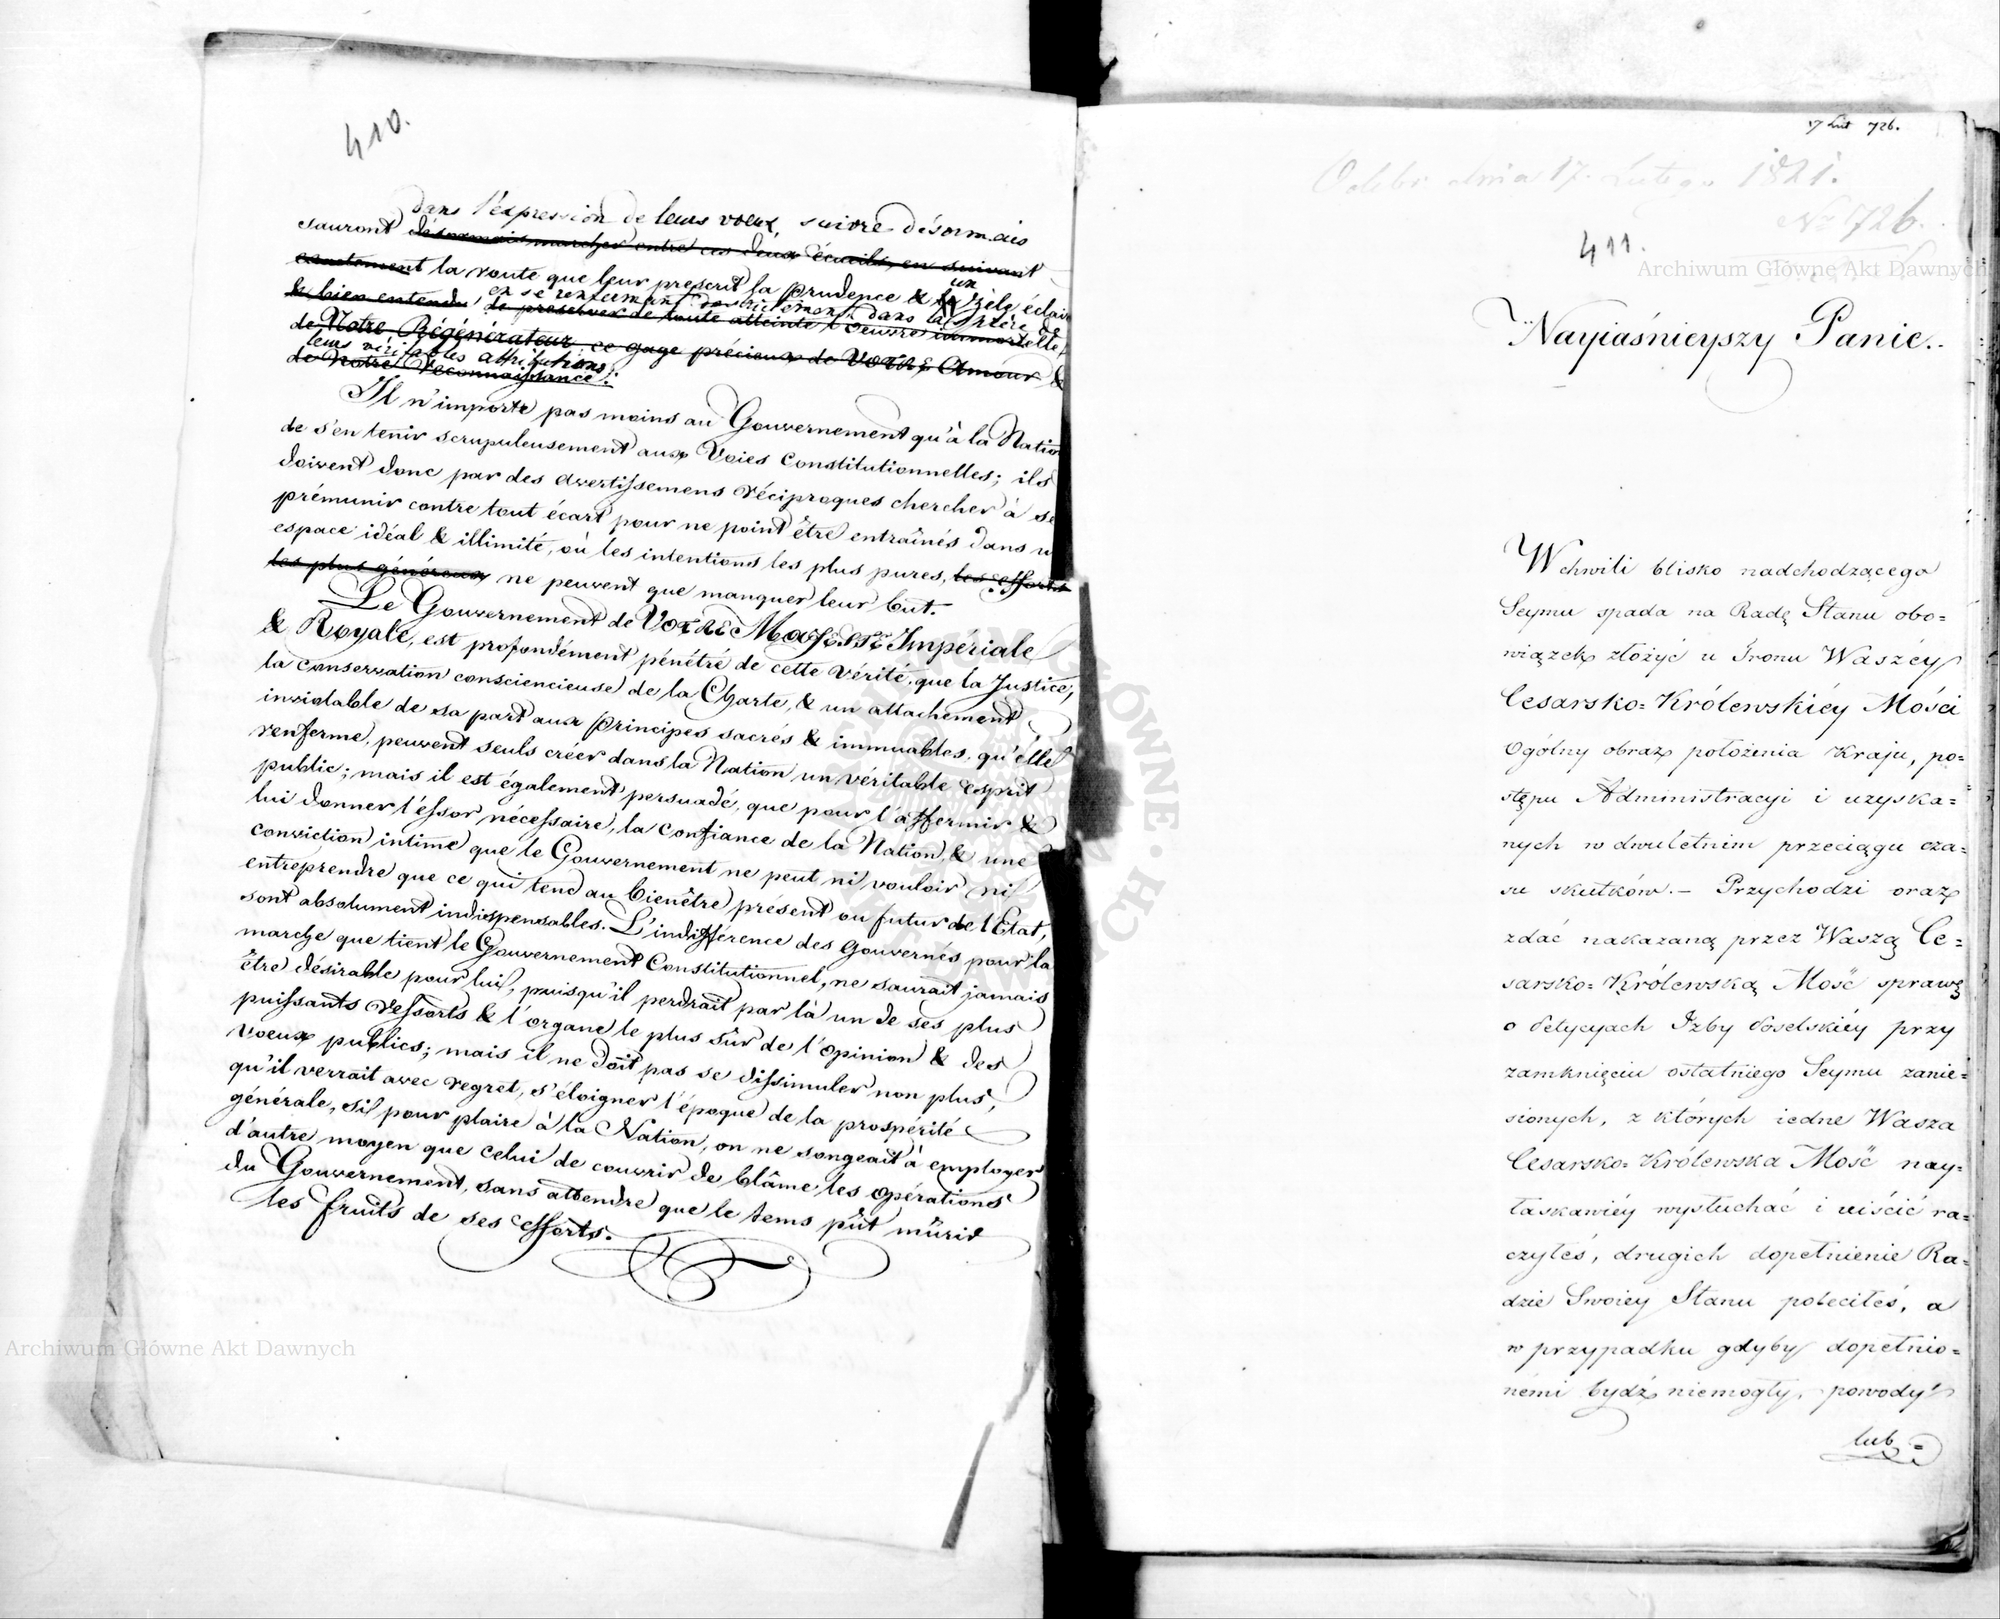 410.
dans l'expression de leurs voeux, suivre désormais
sauront désormais marcher entre ces deux écueils, en suivant
constamment la route que leur prescrit la prudence & le zèle éclairé
un
& bien entendu, de preserver de toute atteinte l'oeuvre immortelle
en se renfermant dans la sphère de
de Notre Régénérateur, ce gage précieux de Votre Amour &
leurs véritables attributions.
de Notre reconnaissance.
Il n'importe pas moins au Gouvernement qu'à la Nation
de s'en tenir scrupuleusement aux Voies Constitutionnelles; ils
doivent donc par des avertissemens réciproques chercher à se
prémunir contre tout écart pour ne point être entraînés dans u
espace idéal & illimité, où les intentions les plus pures, les efforts
les plus généreux ne peuvent que manquer leur but.
Le Gouvernement de Votre Majesté Impériale
& Royale, est profondément pénétré de cette vérité, que la Justice,
la conservation consciencieuse de la Charte, & un attachement
inviolable de sa part aux principes sacrés & immuables, qu'elle
renferme, peuvent seuls créer dans la Nation un véritable Esprit
public; mais il est également persuadé, que pour l'affermir &
lui donner l'éssor nécessaire, la confiance de la Nation, & une
conviction intime que le Gouvernement ne peut ni vouloir ni
entreprendre que ce qui tend au bienêtre présent ou futur de l'Etat,
sont absolument indispensables. L'indifférence des gouvernés pour la
marche que tient le Gouvernement Constitutionnel, ne saurait jamais
être désirable pour lui, puisqu'il perdrait par là un de ses plus
puissants ressorts & l'organe le plus sûr de l'opinion & des
voeux publics; mais il ne doit pas se dissimuler non plus,
qu'il verrait avec regret, s'éloigner l'époque de la prospérité
générale, si pour plaire à la Nation, on ne songeait à employer
d'autre moyen que celui de couvrir de blâme les opérations
du Gouvernement, sans attendre que le tems pût mûrir
les fruits de ses efforts.
17 Lut 726.
Odebr. dnia 17. Lutego 1821.
No 726.
411.
Nayiaśnieyszy Panie.
W chwili blisko nadchodzącego
Seymu spada na Radę Stanu obo=
wiązek złożyć u Tronu Waszéy
Cesarsko=Królewskiéy Mości
Ogólny obraz położenia Kraju, po=
stępu Administracyi i uzyska=
nych w dwuletnim przeciągu cza=
su skutków. – Przychodzi oraz
zdać nakazaną przez Waszą Ce=
sarsko=Królewską Mość sprawę
o Petycyach Izby Poselskiéy przy
zamknięciu ostatniego Seymu zanie=
sionych, z których iedne Wasza
Cesarsko=Królewska Mość nay=
łaskawiéy wysłuchać i uiścić ra=
czyłeś, drugich dopełnienie Ra=
dzie Swoiey Stanu poleciłeś, a
w przypadku gdyby dopełnio=
némi bydź niemogły, powody
lub=
Archiwum Główne Akt Dawnych
Archiwum Główne Akt Dawnych